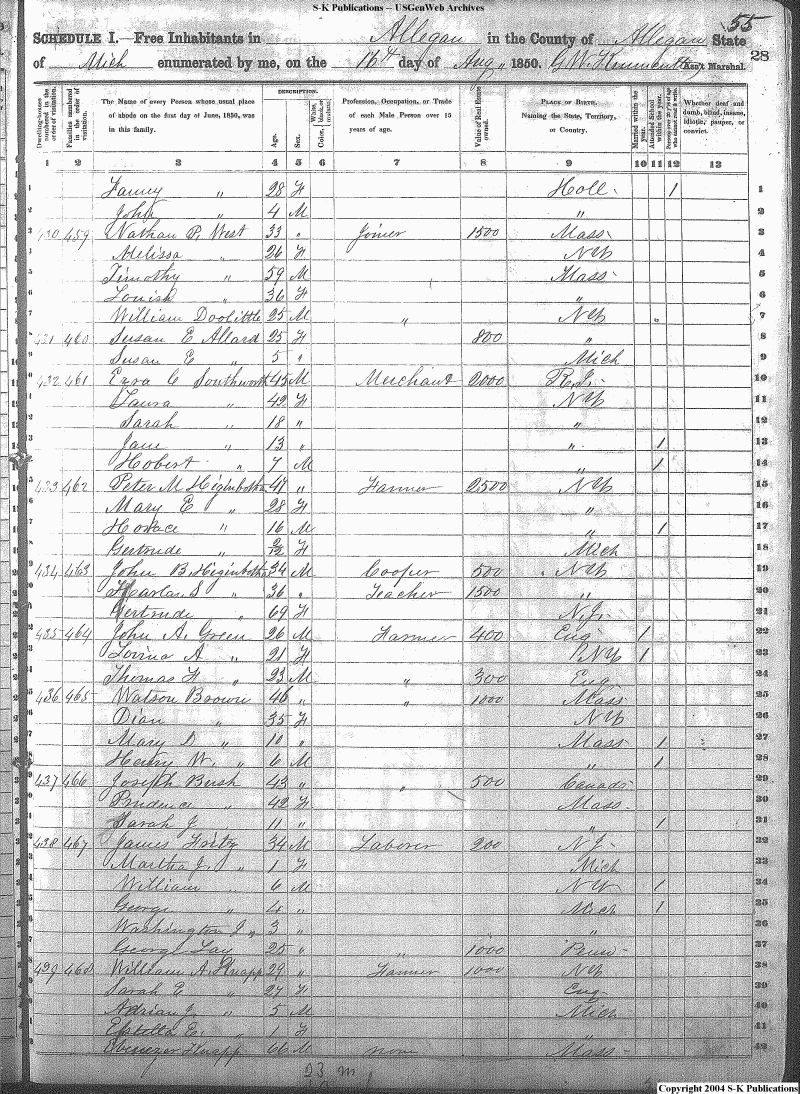 S-K Publications – USGenWeb Archives
55
SCHEDULE I.—Free Inhabitants in Allegan in the County of Allegan State
of Mich enumerated by me, on the 16th day of Aug 1850. G. W. Ass't Marshal.
28
Dwelling-houses numbered in the order of visitation.
Families numbered in the order of visitation.
The Name of every Person whose usual place of abode on the first day of June, 1850, was in this family.
DESCRIPTION.
Age.
Sex.
Color, White, black, or mulatto.
Profession, Occupation, or Trade of each Male Person over 15 years of age.
Value of Real Estate owned.
PLACE OF BIRTH. Naming the State, Territory, or Country.
Married within the year.
Attended School within the year.
Persons over 20 y'rs of age who cannot read & write.
Whether deaf and dumb, blind, insane, idiotic, pauper, or convict.
1 2 3 4 5 6 7 8 9 10 11 12 13
1 Fanny " 28 F Holl. 1 1
2 John " 4 M " 2
430 459 Nathan P. West 33 " Joiner 1500 Mass 3
Melissa " 26 F NY 4
Timothy " 59 M Mass 5
Louish " 36 F " 6
William Doolittle 25 M " NY 7
431 460 Susan E Allard 25 F 800 " 8
Susan E " 5 " Mich 9
432 461 Ezra C Southworth 45 M Merchant 2000 R.I. 10
Laura " 42 F NY 11
Sarah " 18 " " 12
Jane " 13 " " 1 13
Hobert " 7 M 1 14
433 462 Peter M Higinbotha 47 " Farmer 2500 NY 15
Mary E " 28 F " 16
Horace " 16 M " 1 17
Gertrude " 2/12 F Mich 18
434 463 John B. Higinbotha 34 M Cooper 500 NY 19
Harlan " 36 " Teacher 1500 " 20
Gertrude " 69 F N.J. 21
435 464 John A. Green 26 M Farmer 400 Eng 1 22
Lovina A " 21 F NY 1 23
Thomas H " 23 M " 300 Eng 24
436 465 Watson Brown 46 " " 1000 Mass 25
Dian " 35 F NY 26
Mary D " 10 " Mass 1 27
Henry W. " 6 M " 1 28
437 466 Joseph Bush 43 " " 500 Canada 29
Prudence " 42 F Mass 30
Sarah J 11 " " 1 31
438 467 James Fritz 34 M Laborer 200 N.J. 32
Martha J. " 1 F Mich 33
William " 6 M NY 1 34
George " 4 " Mich 1 35
Washington I " 3 " " 36
George Lay 25 " " 1000 Penn 37
439 468 William A. Knapp 29 " Farmer 1000 NY 38
Sarah E " 27 F Eng 39
Adrian J. " 5 M Mich 40
Estella E. " 1 F " 41
Ebenezer Knapp 66 M none Mass 42
23 m
Copyright 2004 S-K Publications